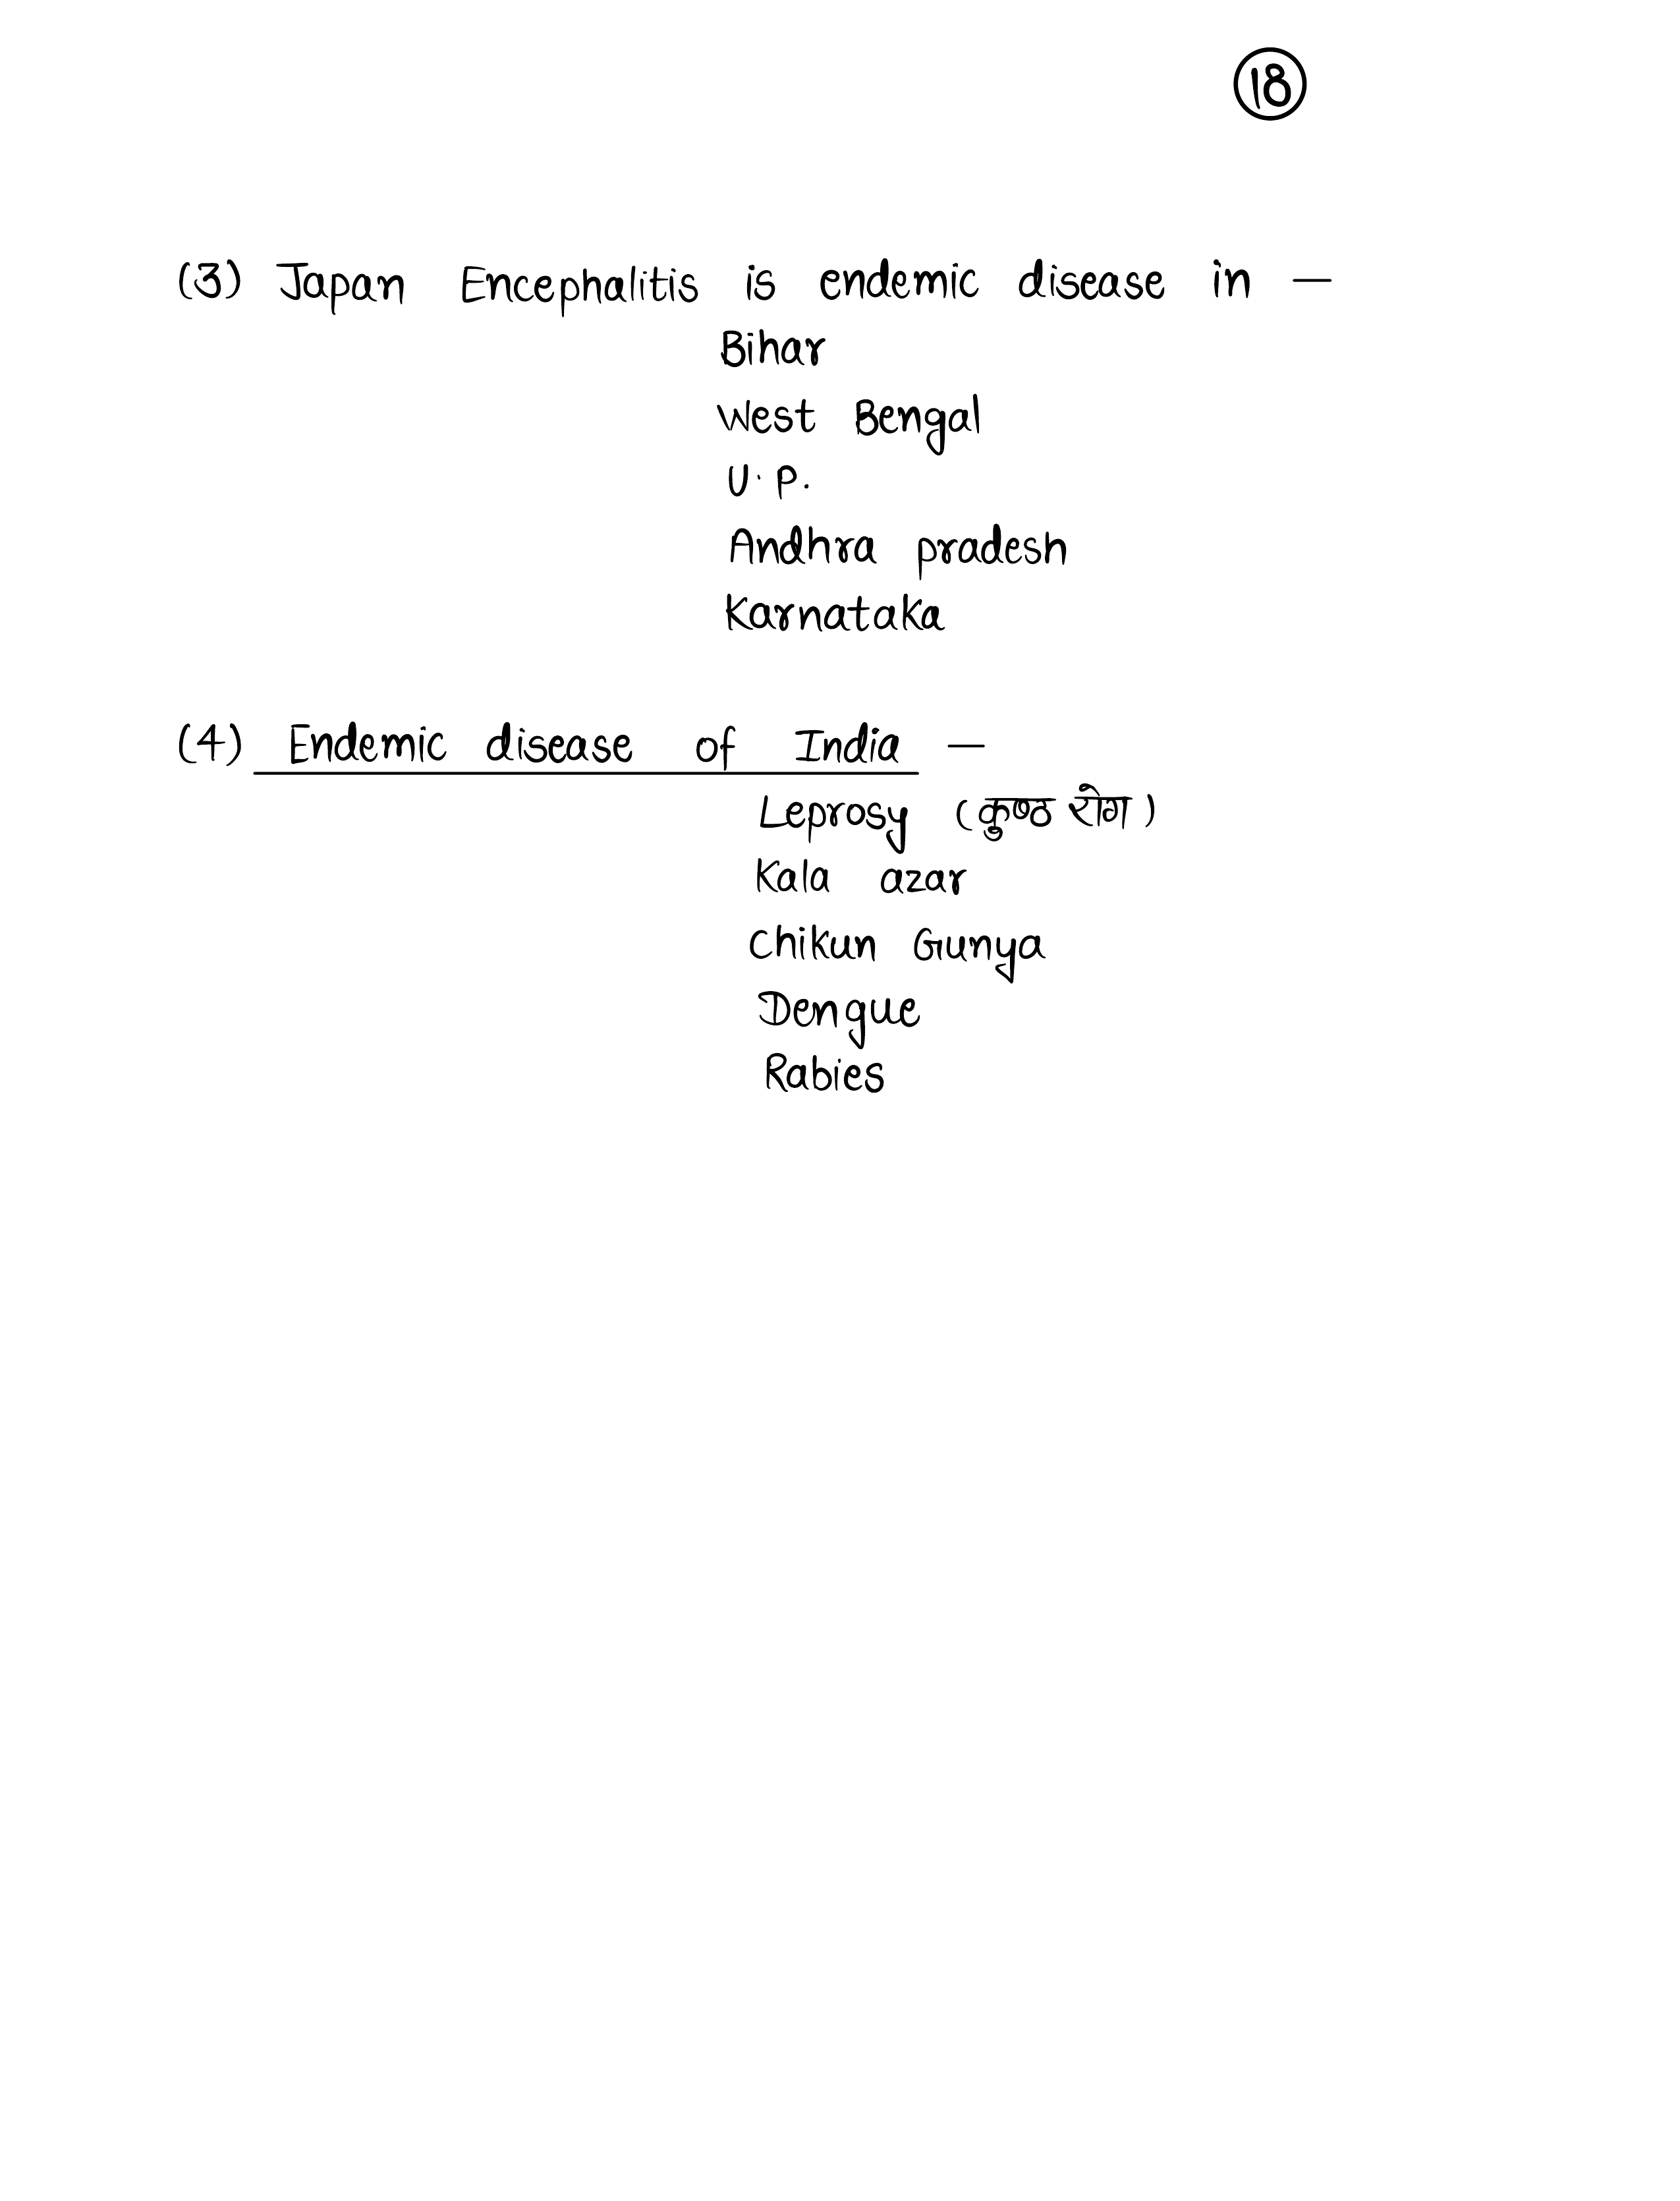 18
(3) Japan Encephalitis is endemic disease in —
Bihar
West Bengal
U.P.
Andhra pradesh
Karnataka
(4) Endemic disease of India —
Leprosy (कुष्ठ रोग)
Kala azar
Chikun Gunya
Dengue
Rabies